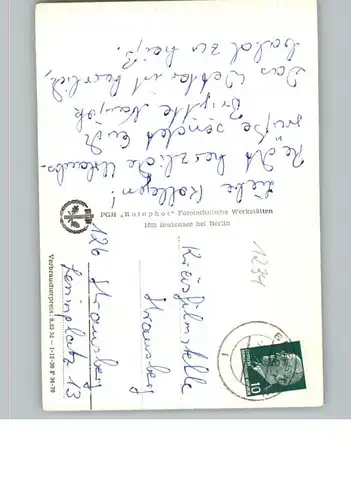 Liebe Kollegen!
herzliche Urlaubs-
grüße sendet Euch
Das Wetter ist herrlich,
bald zu heiß.
PGH „Rotophot" Fototechnische Werkstätten
1602 Bestensee bei Berlin
Verbraucherpreis: 0,25 M
Kreisfilmstelle
Strausberg
126 Strausberg
Leninplatz 13
1234
10